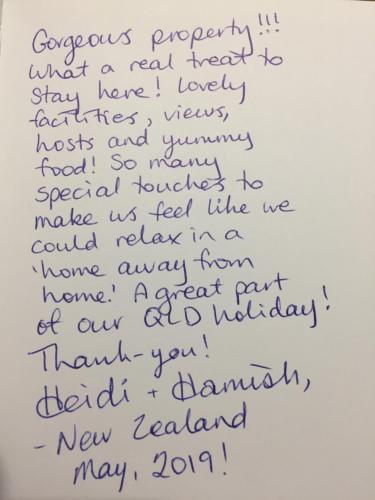 Gorgeous property!!!
What a real treat to
stay here! Lovely
facilities, views,
hosts and yummy
food! So many
special touches to
make us feel like we
could relax in a
'home away from
home.' A great part
of our QLD holiday!
Thank-you!
Heidi + Hamish,
- New Zealand
May, 2019!